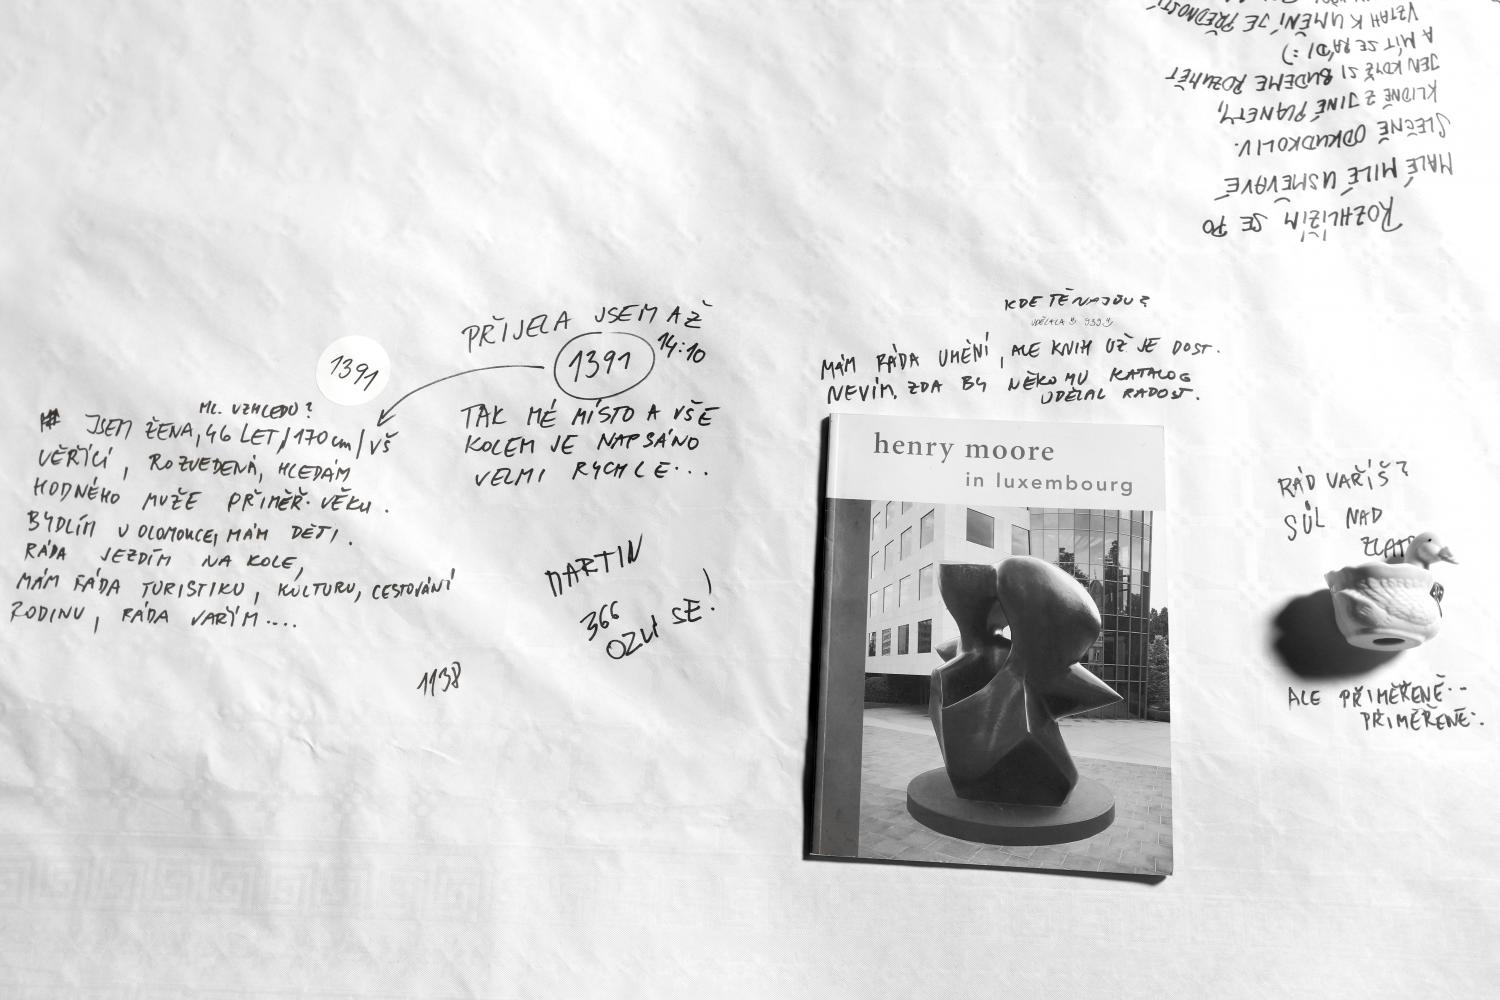 PŘIJELA JSEM AŽ
1391
14:10
TAK MÉ MÍSTO A VŠE
KOLEM JE NAPSÁNO
VELMI RYCHLE...
1391
ML. VZHLEDU?
# JSEM ŽENA, 46 LET/170cm/VŠ
VĚŘÍCÍ, ROZVEDENÁ, HLEDÁM
HODNÉHO MUŽE PŘIMĚŘ. VĚKU.
BYDLÍM V OLOMOUCI, MÁM DĚTI.
RÁDA JEZDÍM NA KOLE,
MÁM RÁDA TURISTIKU, KULTURU, CESTOVÁNÍ
RODINU, RÁDA VAŘÍM....
MARTIN
366
OZVI SE!
1138
KDE TĚ NAJDU?
UDĚLALA 939
MÁM RÁDA UMĚNÍ, ALE KNIH UŽ JE DOST.
NEVÍM, ZDA BY NĚKOMU KATALOG
UDĚLAL RADOST.
henry moore
in luxembourg
ROZHLÍŽÍM SE PO
MALÉ MILÉ USMĚVAVÉ
SLEČNĚ ODKUDKOLIV.
KLIDNĚ Z JINÉ PLANETY,
JEN KDYŽ SI BUDEME ROZUMĚT
A MÍT SE RÁDI :)
VZTAH K UMĚNÍ JE PŘEDNOSTÍ
RÁD VAŘÍŠ?
SŮL NAD
ZLATO
ALE PŘIMĚŘENĚ..
PŘIMĚŘENĚ.